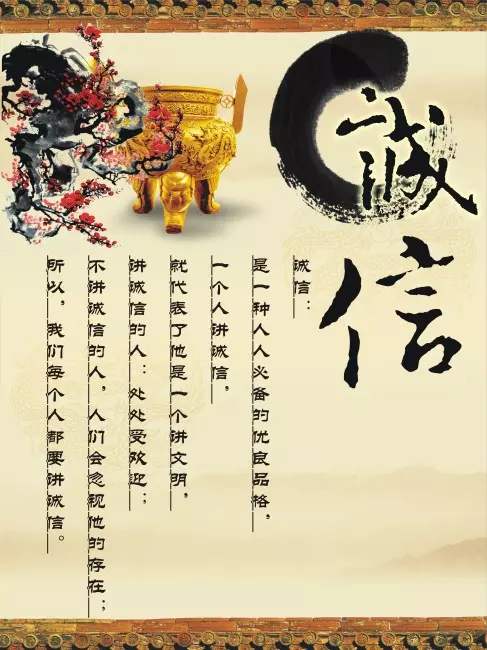 诚信
诚信：
是一种人人必备的优良品格，
一个人讲诚信，
就代表了他是一个讲文明，
讲诚信的人：处处受欢迎；
不讲诚信的人，人们会忽视他的存在；
所以，我们每个人都要讲诚信。